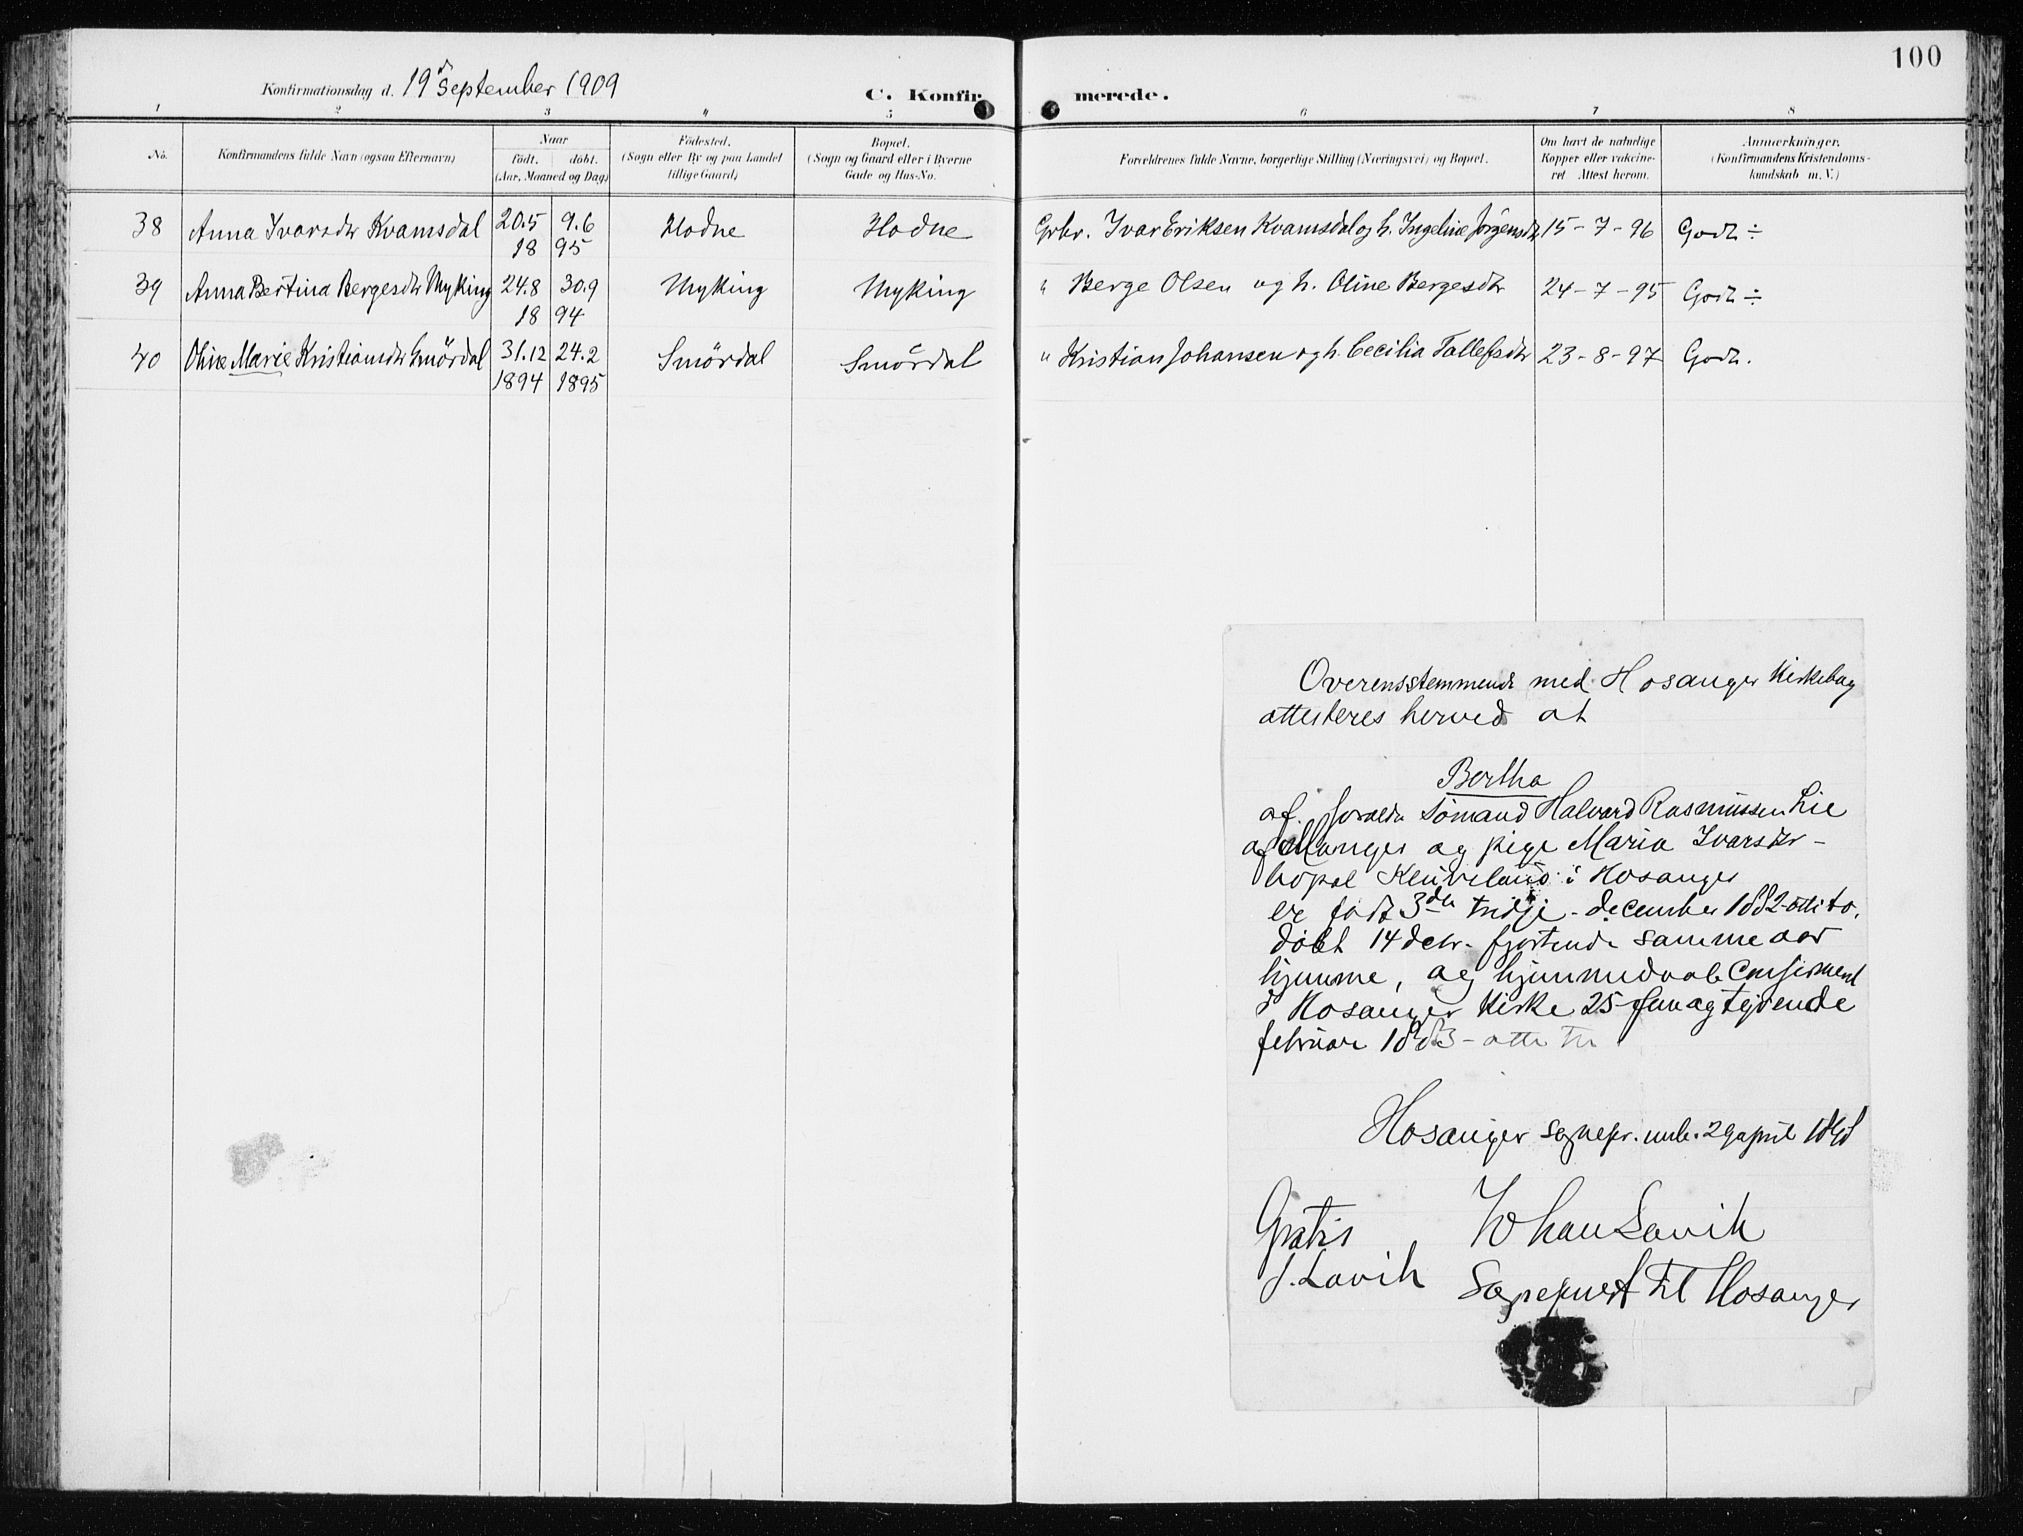 100
Konfirmationsdag d. 19d September 1909
C. Konfirmerede.
1 2 3 4 5 6 7 8
No. Konfirmandens fulde Navn (ogsaa Efternavn) Naar født. døbt. (Aar, Maaned og Dag) Fødested. (Sogn eller By og paa Landet tillige Gaard) Bopæl. (Sogn og Gaard eller i Byerne Gade og Hus-No. Forældrenes fulde Navne, borgerlige Stilling (Næringsvei) og Bopæl. Om havt de naturlige Kopper eller vakcineret Attest herom. Anmærkninger. (Konfirmandens Kristendomskundskab m. V.)
38 Anna Ivarsdtr Kvamsdal 20.5 9.6 Hodne Hodne Grbr. Ivar Eriksen Kvamsdal og h. Ingeline Jörgensdtr 15-7-96 Godt ÷
18 95
39 Anna Bertina Bergesdtr Myking 24.8 30.9 Myking Myking " Berge Olsen og h. Oline Bergesdtr 24-7-95 Godt ÷
18 94
40 Oline Marie Kristiansdtr Smördal 31.12 24.2 Smördal Smördal " Kristian Johansen og h. Cecilia Tollefsdtr 23-8-97 Godt.
1894 1895
Overensstemmende med Hosanger Kirkebog
attesteres herved at
Bertha
af. foraldr Sömand Halvard Rasmussen Lie
af Manger og pige Maria Ivarsdtr -
bopal i Hosanger
er født 3die tridje - december 1882 - otti to.
döbt 14 decbr. fjortende samme aar
hjemme, og hjemmedaab Confirmeret
i Hosanger Kirke 25 - fem og tjvende
februar 1883 - otti tre
Hosanger Sognepr. emb. 29 april 1898
Gratis Johan Lavik
J. Lavik Sogneprest til Hosanger